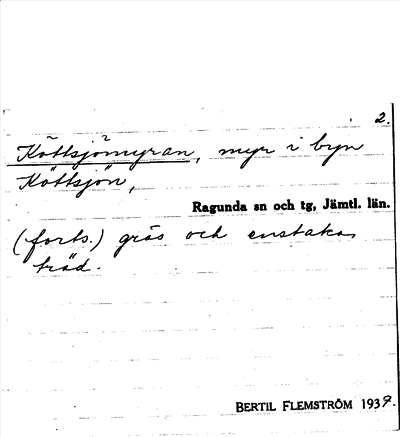 2.
Köttsjömyran, myr i byn
Köttsjön,
Ragunda sn och tg, Jämtl. län.
(forts.) gräs och enstaka
träd.
BERTIL FLEMSTRÖM 1939.